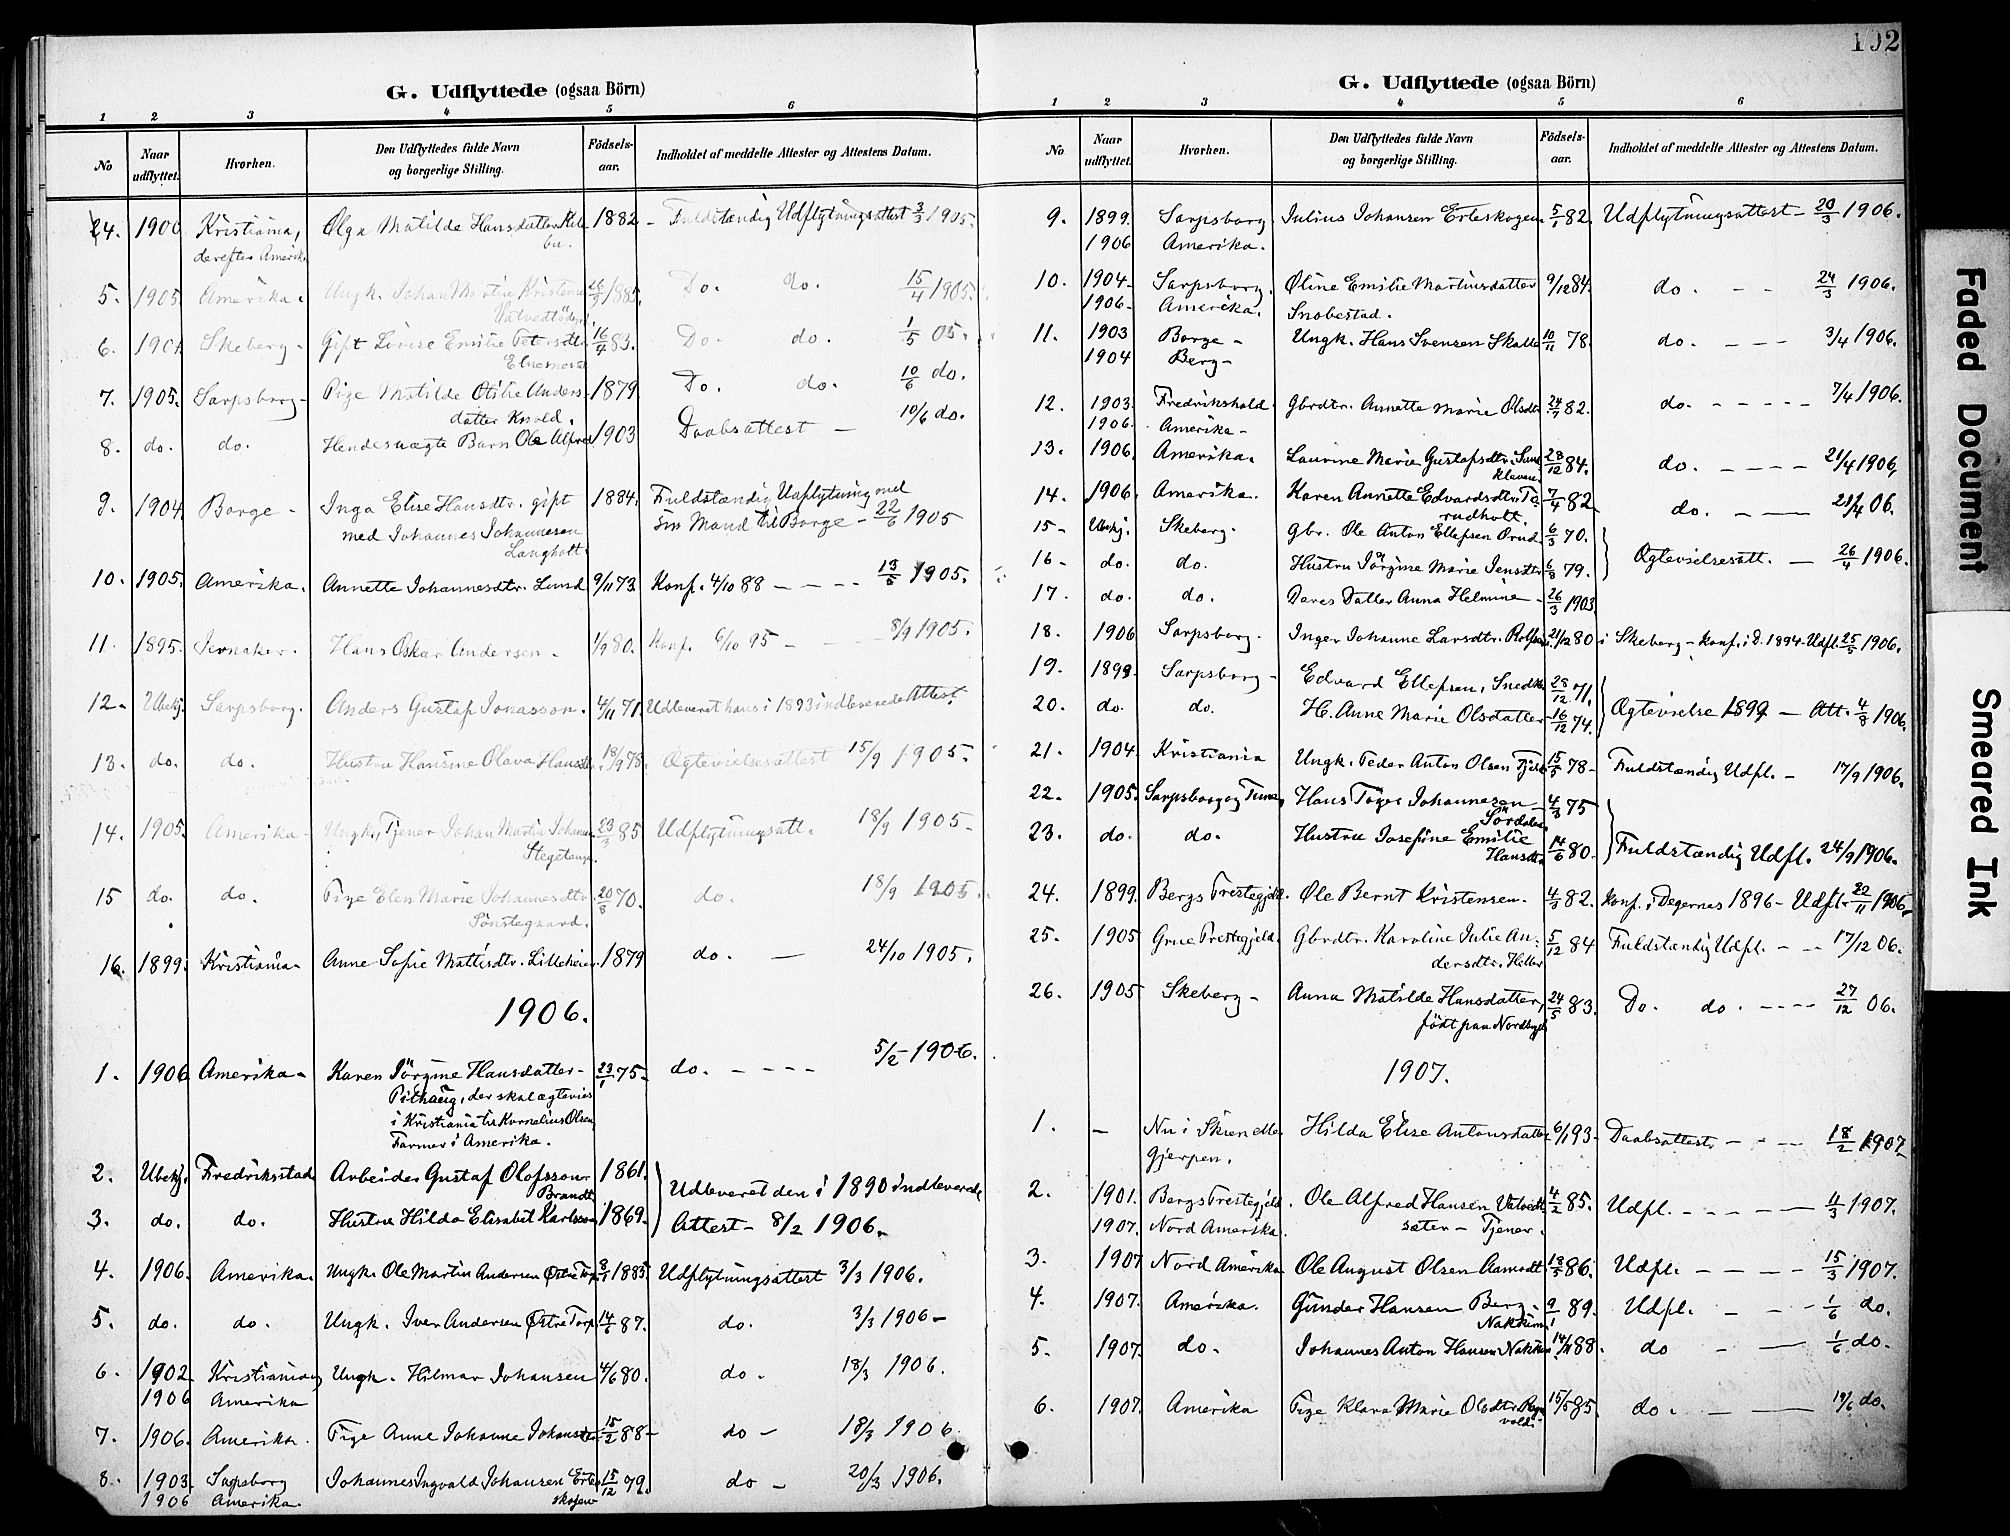 102
G. Udflyttede (ogsaa Börn)
1 2 3 4 5 6
No Naar udflyttet. Hvorhen. Den Udflyttedes fulde Navn og borgerlige Stilling. Födsels-aar. Indholdet af meddelte Attester og Attestens Datum.
4. 1900 Kristiania, Olga Matilde Hansdatter 1882 – Fuldstændig Udflytningsattest 3/3 1905.
derefter Amerika
5. 1905 Amerika. Ungk. Johan Martin Kristian 1885. Do. do. 15/4 1905.
6. Skeberg – Gift Lovise Emilie Petersdtr. 16/4 83. Do. do. 1/5 05.
7. 1905. Sarpsborg – Pige Matilde Otilie Anders- 1879. Do. do. 10/6 do.
datter
8. do. do. Hendes uægte Barn Ole Alfred 1903 Daabsattest – 10/6 do.
9. 1904 Borge – Inga Elise Hansdtr. gift 1884. Fuldstændig Udflytning med
med Johannes Johannesen sin Mand til Borge – 22/6 1905
Langholt.
10. 1905. Amerika. Annette Johannesdtr. Lund 9/11 73. Konf. 4/10 88 – – – – 13/8 1905.
11. 1895. Jevnaker. Hans Oskar Andersen – 1/9 80. Konf. 6/10 95 – – 8/9 1905.
12. Ubekj. Sarpsborg. Anders Gustaf Jonasson. 4/11 71. Udleveret hans i 1893 indleverede Attest.
13. do. do. Hustru Hansine Olava 18/9 78. Ægtevielsesattest 15/9 1905.
14. 1905. Amerika – Ungk., Tjener Johan Martin Johannes. 23/3 85 Udflytningsatt. 18/9 1905 –
Stegetangen.
15 do. do. Pige Elen Marie Johannesdtr. 20/8 70. do. 18/9 1905.
Sønstegaard.
16. 1899. Kristiania – Anne Sofie Mattisdtr. Lilleheier. 1879 do. – 24/10 1905.
1906.
1. 1906 Amerika – Karen Jörgine Hansdatter – 23/1 75 – do. – – – – 5/2 – 1906.
Pithaug, der skal ægtevies
i Kristiania til Kornelius Olsen
Farmer i Amerika.
2. Ubekj. Fredriksstad Arbeider Gustaf Olofsson 1861. Udleveret den i 1890 indleverede
Brandt
3. do. do. Hustru Hilda Elisabet Karlsson 1869. Attest – 8/2 1906.
4. 1906. Amerika. Ungk. Ole Martin Andersen Østre Torp 1885. Udflytningsattest 3/3 1906.
5. do. do. Ungk. Iver Andersen Østre Torp 14/6 87. do. 3/3 1906 –
6. 1902 Kristiania og Ungk. Hilmar Johansen 4/6 80. do. 18/3 1906.
1906 Amerika
7. 1906. Amerika. Pige Anne Johanne Johansdtr. 15/2 88 – do – 18/3 1906.
8. 1903. Sarpsborg Johannes Ingvald Johansen Erte- 15/12 79. do – 20/3 1906.
1906 Amerika. skogen
G. Udflyttede (ogsaa Börn)
1 2 3 4 5 6
No Naar udflyttet. Hvorhen. Den Udflyttedes fulde Navn og borgerlige Stilling. Födsels-aar. Indholdet af meddelte Attester og Attestens Datum.
9. 1899. Sarpsborg Julius Johansen Erteskogen 5/1 82. Udflytningsattest – 20/3 1906.
1906 Amerika.
10. 1904 – Sarpsborg. Oline Emilie Martinsdatter 9/12 84. do. – – 24/3 1906.
1906 – Amerika. Snobestad.
11. 1903 Borge – Ungk. Hans Svensen 10/11 78. do. – – – 3/4 1906.
1904 Berg –
12. 1903. Fredrikshald Gbrdtr. Annette Marie Olsdtr. 82. do. – – – – – 7/4 1906.
1906. Amerika –
13. 1906. Amerika. Laurine Marie Gustafsdtr. 28/12 84. do. – – – – 21/4 1906.
14. 1906. Amerika. Karen Annette Edvardsdtr. 7/4 82 – do. – – – 21/4 06.
15 – Ubekj. Skeberg. Gbr. Ole Anton Ellefsen 6/3 70.
16 – do. do. Hustru Jörgine Marie Jensdtr. 6/8 79. Ægtevielsesatt. – 26/4 1906.
17. do. do. Deres Datter Anna Helmine – 26/3 1903
18. 1906 Sarpsborg. Inger Johanne Larsdtr. 21/12 80 i Skeberg – konf. i D. 1894. Udfl. 25/5 1906.
19. 1899. Sarpsborg – Edvard Ellefsen, Snedk. 28/12 71.
20. do. do. H. Anne Marie Olsdatter – 16/12 74. Ægtevielse 1899 – Att. 4/8 1906.
21. 1904. Kristiania Ungk. Peder Anton Olsen 15/5 78 – Fuldstændig Udfl. – 17/9 1906.
22. 1905. Sarpsborg og Tune, Hans Töger Johannesen – 4/3 75
23. do. do. Hustru Josefine Emilie 14/6 80. Fuldstændig Udfl. 24/9 1906.
Hansdtr.
24. 1899. Bergs Prestegjeld. Ole Bernt Kristensen. 4/3 82. Konf. i Degernæs 1896 – Udfl. 22/11 1906.
25. 1905 Grue Prestegjeld. Gbrdtr. Karoline Julie An- 5/12 84 Fuldstændig Udfl. – – 17/12 06.
dersdtr.
26. 1905 Skeberg – Anna Matilde Hansdatter, 24/5 83. Do. do. – – – – 27/12 06.
født paa Nordbyeie
1907.
1. – Nu i Skien eller Hilda Elise Antonsdatter 6/1 93 – Daabsattest – – – 18/2 1907 –
Gjerpen.
2. 1901. Bergs Prestegjeld. Ole Alfred Hansen Vatvedt- 4/2 85. Udfl. – – – – – 4/3 1907.
1907. Nord Amerika. sæter – Tjener.
3. 1907 Nord Amerika Ole August Olsen Aamodt. 18/5 86. Udfl. – – – – 15/3 1907.
4. 1907. Amerika. Gunder Hansen Berg – 9/1 89. Udfl. – – – 1/6 do.
Nakkim
5. 1907. do. Johannes Anton Hansen 88. do – – 1/6 do.
6. 1907. Amerika Pige Klara Marie Olsdtr. 15/5 85. do. – – 19/6 do.
Faded Document
Smeared Ink